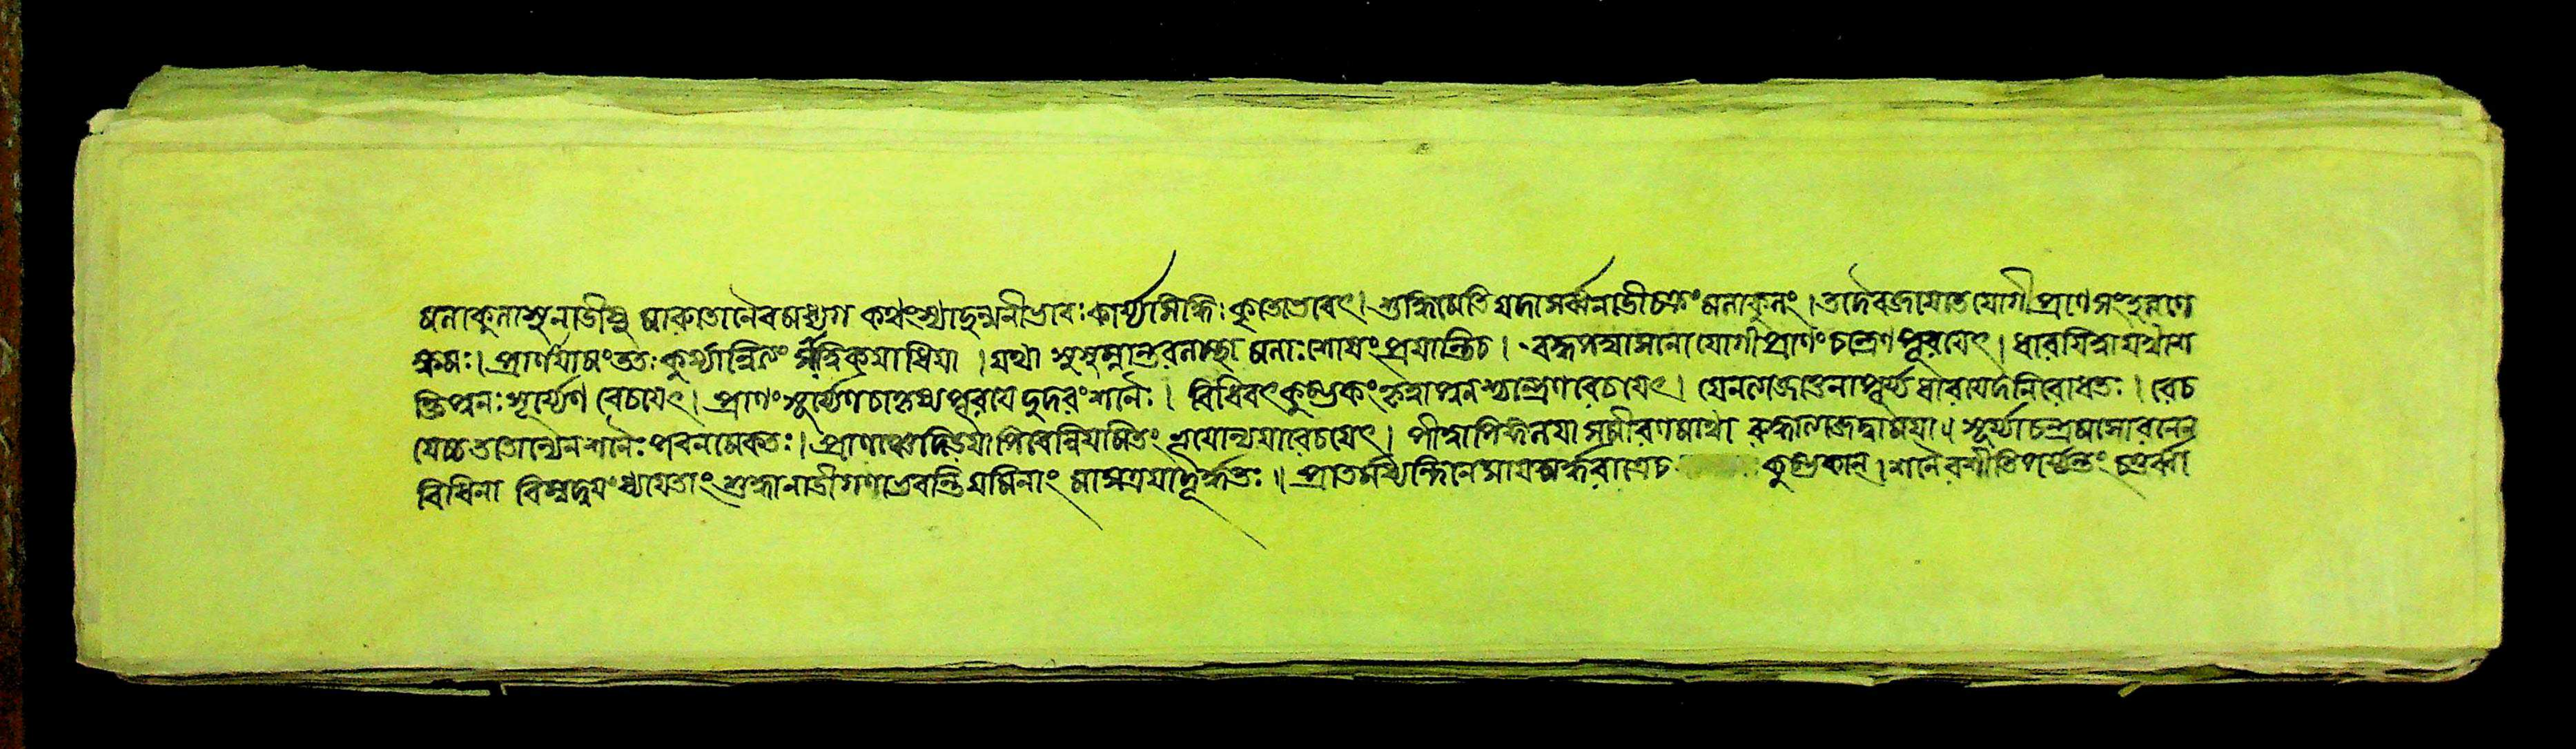 মলাকুলাসু নাডীষু মারুতোনৈবমধ্যগ কথংস্যাদুন্মনীভাবঃকার্য্যসিদ্ধিঃ কুতোভবেৎ। শুদ্ধিমেতি যদাসর্ব্বনাডীচক্রংমলাকুলং। তদৈবজায়তেযোগীপ্রাণসংগ্রহণে
ক্ষমঃ। প্রাণায়ামংততঃকুর্য্যান্নিত্যং সাত্বিকয়াধিয়া । যথা সুষুম্নান্তরলাস্থা মলাঃশোষংপ্রয়ান্তিচ। বদ্ধপদ্মাসনোযোগীপ্রাণং চন্দ্রেণ পূরয়েৎ। ধারয়িত্বাযথাশ
ক্তিপুনঃসূর্য্যেণ রেচয়েৎ। প্রাণং সূর্য্যেণচাকৃষ্যপূরয়েদুদরংশনৈঃ। বিধিবৎকুম্ভকংকৃত্বাপুনশ্চন্দ্রেণরেচয়েৎ। যেনত্যজেত্তেনাপূর্য্যধারয়েদনিরোধতঃ। রেচ
যেচ্চততোন্যেনশনৈঃ পিবেন্নিয়মিতং ভূয়োন্যয়ারেচয়েৎ। পীত্বাপিঙ্গলয়াসমীরণমথো বদ্ধ্বাত্যজেদ্বাময়া। সূর্য্যাচন্দ্রমসোরনেন
বিধিনা বিম্বদ্বয়ংধ্যায়তাং শুদ্ধানাডীগণাভবন্তিযমিনাং মাসত্রয়াদূর্দ্ধতঃ॥ প্রাতর্মধ্যন্দিনেসায়মর্দ্ধরাত্রেচ কুম্ভকান্। শনৈরশীতিপর্য্যন্তং